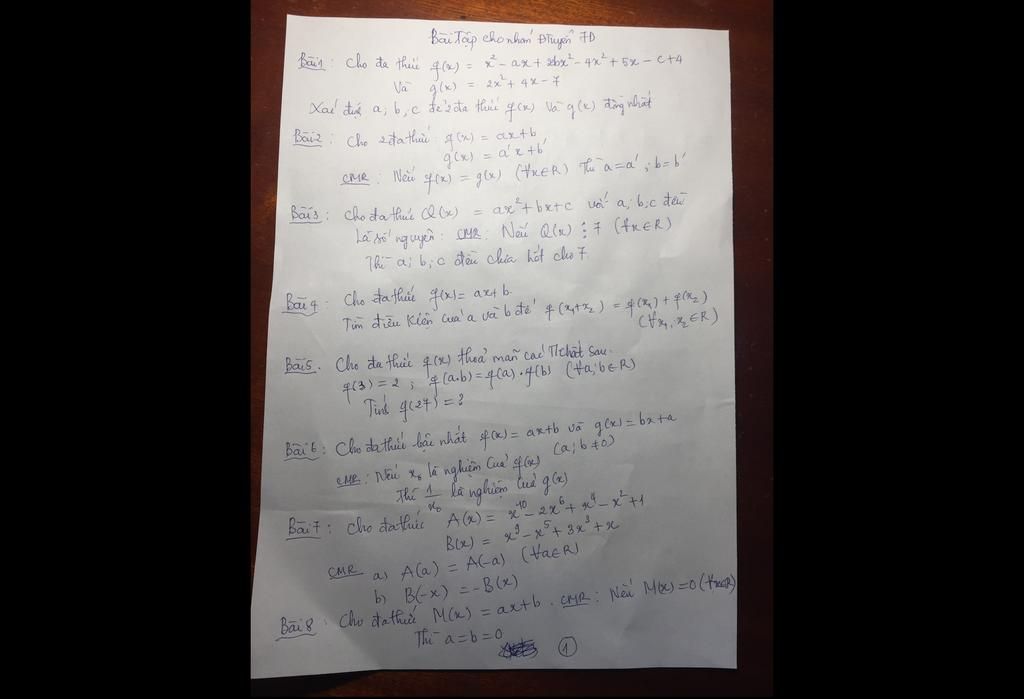 Bài Tập cho nhóm ĐTuyển 7D
Bài 1 : Cho đa thức f(x) = x² - ax + 2bx² - 4x² + 5x - c + 4
Và g(x) = 2x² + 4x - 7
Xác định a; b; c để 2 đa thức f(x) và g(x) đồng nhất
Bài 2 : Cho 2 đa thức: f(x) = ax + b
g(x) = a'x + b'
CMR : Nếu f(x) = g(x) (∀x∈R) Thì a = a' ; b = b'
Bài 3 : Cho đa thức Q(x) = ax² + bx + c với a; b; c đều
Là số nguyên : CMR : Nếu Q(x) ⋮ 7 (∀x∈R)
Thì a; b; c đều chia hết cho 7.
Bài 4 : Cho đa thức f(x) = ax + b.
Tìm điều kiện của a và b để f(x₁+x₂) = f(x₁) + f(x₂)
(∀x₁, x₂∈R)
Bài 5. Cho đa thức f(x) thoả mãn các T/chất sau.
f(3) = 2 ; f(a.b) = f(a) . f(b) (∀a; b∈R)
Tính f(27) = ?
Bài 6 : Cho đa thức bậc nhất f(x) = ax + b và g(x) = bx + a
(a; b ≠ 0)
CMR : Nếu x₀ là nghiệm của f(x)
Thì 1/x₀ là nghiệm của g(x)
Bài 7 : Cho đa thức A(x) = x¹⁰ - 2x⁶ + x⁴ - x² + 1
B(x) = x⁹ - x⁵ + 3x³ + x
CMR a) A(a) = A(-a) (∀a∈R)
b) B(-x) = -B(x)
Bài 8 : Cho đa thức M(x) = ax + b . CMR : Nếu M(x) = 0 (∀x∈R)
Thì a = b = 0
1